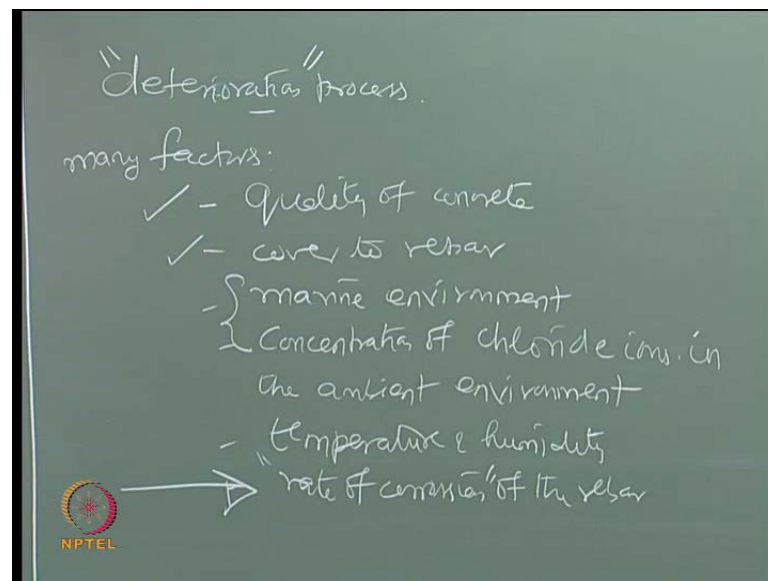 "deterioration" process.
many factors:
✓ - Quality of concrete
✓ - cover to rebar
- { marine environment
Concentration of chloride ions. in
the ambient environment
- temperature & humidity
→ "rate of corrosion" of the rebar
NPTEL